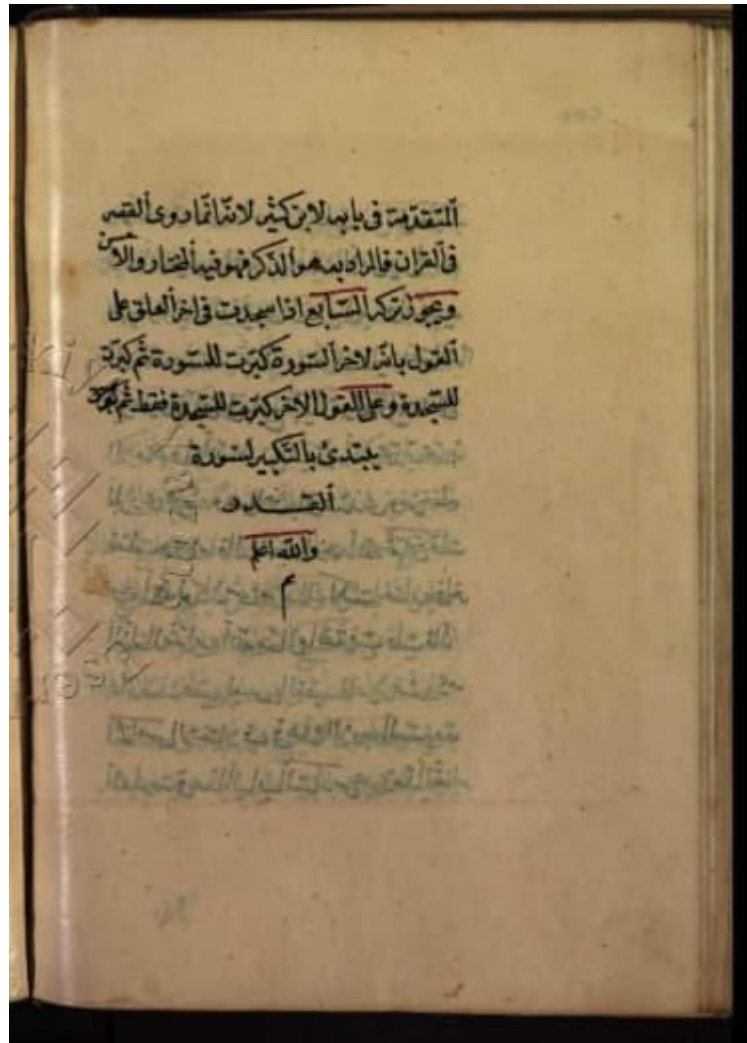 المتقدمة في بابه لابن كثير لانه انما روى القصر
في القران فالمراد به هو الذكر فهو فيه المختار والاحسن
ويجوز تركه السابع اذا سجدت في اخر العلق على
القول بانه لاخر السورة كبرت للسورة ثم كبرت
للسجدة وعلى القول الاخر كبرت للسجدة فقط ثم
يبتدئ بالتكبير لسورة
القدر
والله اعلم
م